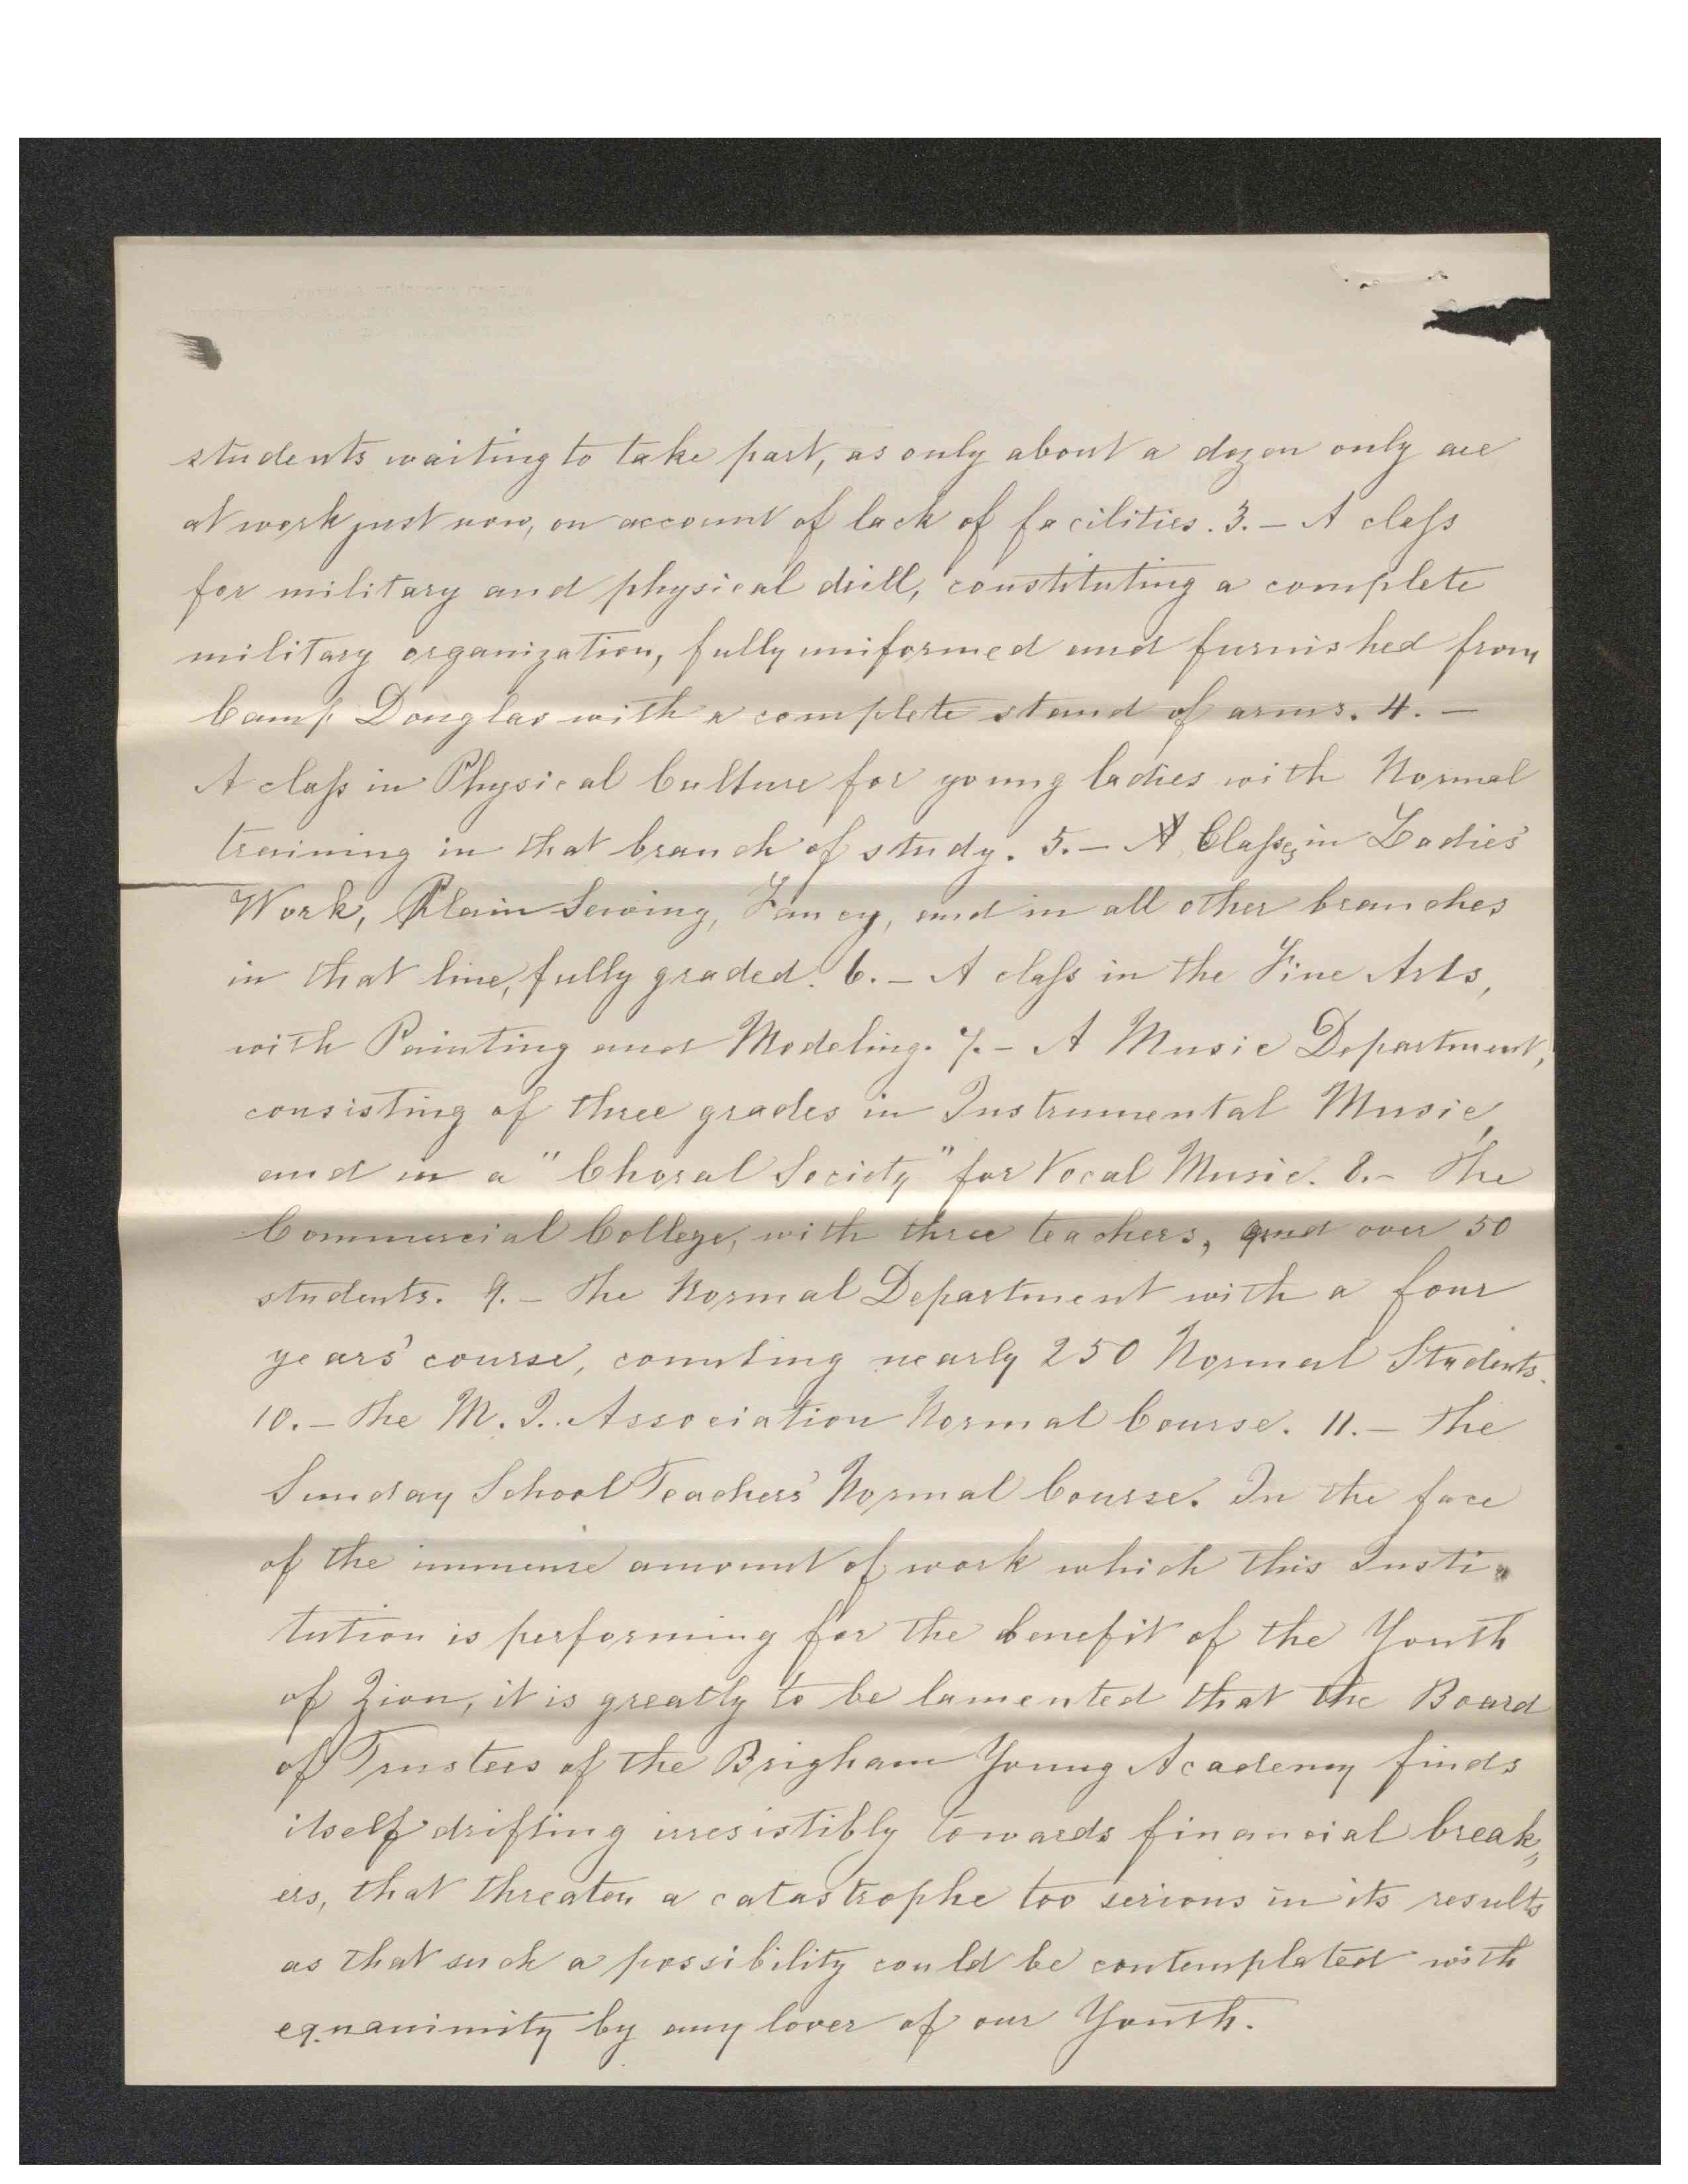 students waiting to take part, as only about a dozen only are
at work just now, on account of lack of facilities. 3. – A class
for military and physical drill, constituting a complete
military organization, fully uniformed and furnished from
Camp Douglas with a complete stand of arms. 4. –
A class in Physical Culture for young ladies with Normal
training in that branch of study. 5. – A Classes in Ladies'
Work, Plain Sewing, Fancy, and in all other branches
in that line, fully graded. 6. – A class in the Fine Arts,
with Painting and Modeling. 7. – A Music Department,
consisting of three grades in Instrumental Music,
and in a "Choral Society" for Vocal Music. 8. – The
Commercial College, with three teachers, and over 50
students. 9. – The Normal Department with a four
years' course, counting nearly 250 Normal Students.
10. – The M. I. Association Normal Course. 11. – The
Sunday School Teachers' Normal Course. In the face
of the immense amount of work which this Insti-
tution is performing for the benefit of the Youth
of Zion, it is greatly to be lamented that the Board
of Trustees of the Brigham Young Academy finds
itself drifting irresistibly towards financial break„
ers, that threaten a catastrophe too serious in its results
as that such a possibility could be contemplated with
equanimity by any lover of our Youth.